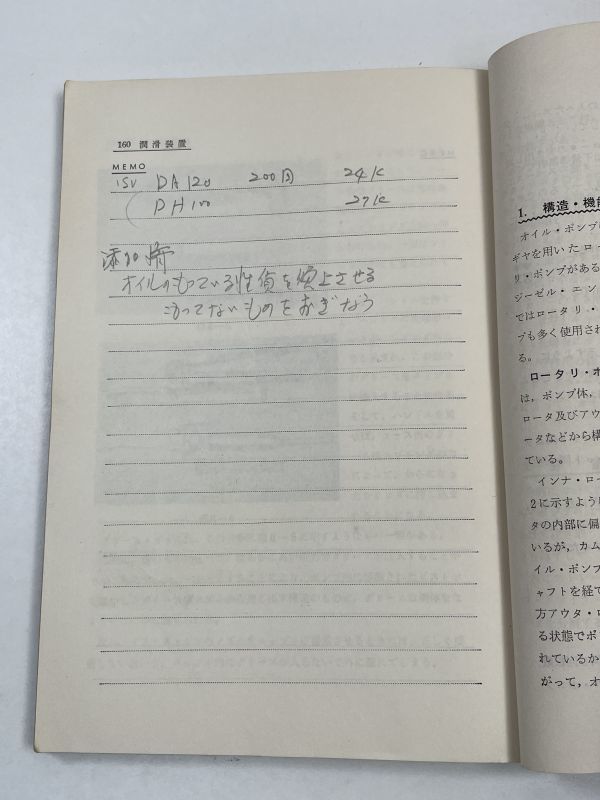 160 潤滑装置
MEMO
ISU DA120 200円 24K
DH100 27K
添加剤
オイルのもっている性質を向上させる
もってないものをおぎなう
1. 構造・機能
オイル・ポンプ
ギヤを用いたロー
リ・ポンプがある
ジーゼル・エン
ではロータリ・
プも多く使用され
る。
ロータリ・オ
は，ポンプ体，
ロータ及びアウ
ータなどから構
ている。
インナ・ロー
2に示すように
タの内部に偏
いるが，カム
イル・ポンプ
ャフトを経て
方アウタ・ロ
る状態でポ
れているか
がって，オ